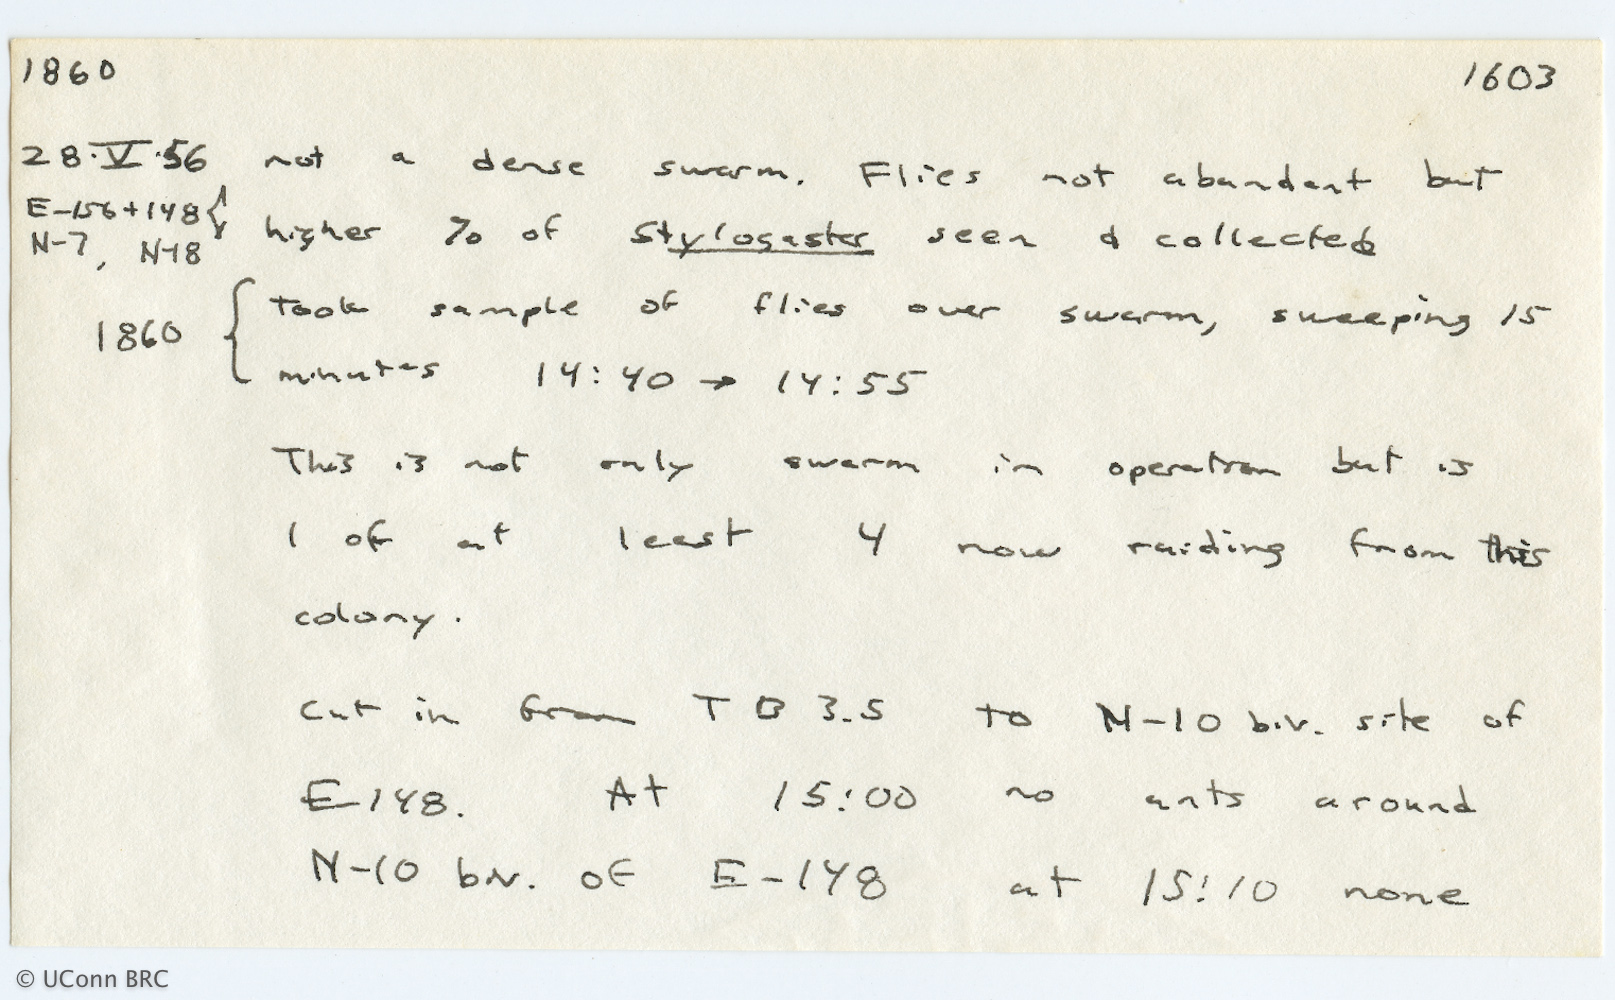 1860 1603
28·V·56 not a dense swarm. Flies not abundant but
E-156+148 higher % of Stylogaster seen & collected
N-7, N-18
took sample of flies over swarm, sweeping 15
1860
minutes 14:40 → 14:55
This is not only swarm in operation but is
1 of at least 4 now raiding from this
colony.
Cut in from T B 3.5 to N-10 biv. site of
E-148. At 15:00 no ants around
N-10 biv. of E-148 at 15:10 none
© UConn BRC